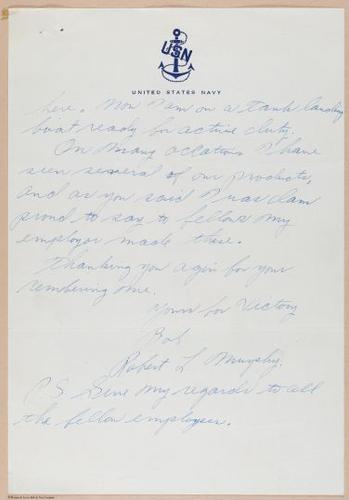 USN
UNITED STATES NAVY
here. Now I am on a tank landing
boat ready for active duty.
On many occations I have
seen several of our products,
and as you said I was dam
proud to say to fellows my
employer made these.
Thanking you agin for your
rembering me.
Yours for Victory
Bob
Robert L Murphy.
P.S. Give my regards to all
the fellow employees.